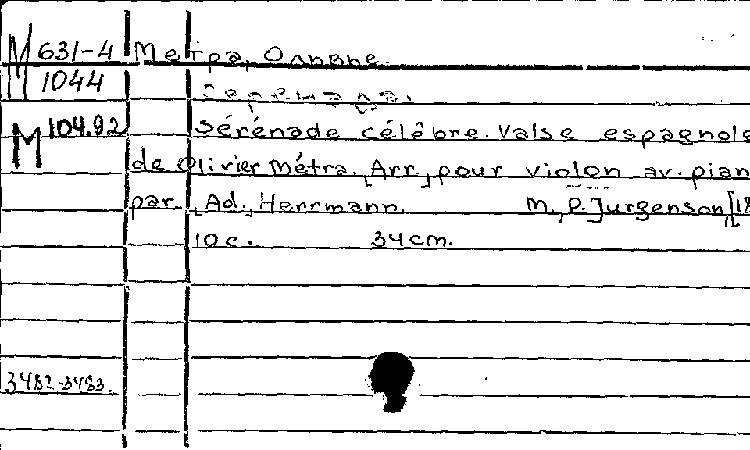 M 631-4 Метра, Оливье.
1044
Серенада.
M 104.92 Sérénade célèbre. Valse espagnole
de Olivier Métra. Arr. pour violon av. pian
par Ad. Herrmann. M., P. Jurgenson, [18
10 c. 34 cm.
3482-3483.